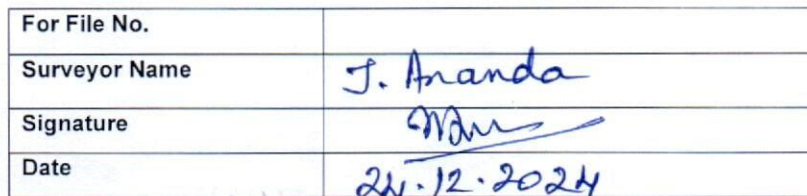 For File No.
Surveyor Name J. Ananda
Signature
Date 24.12.2024